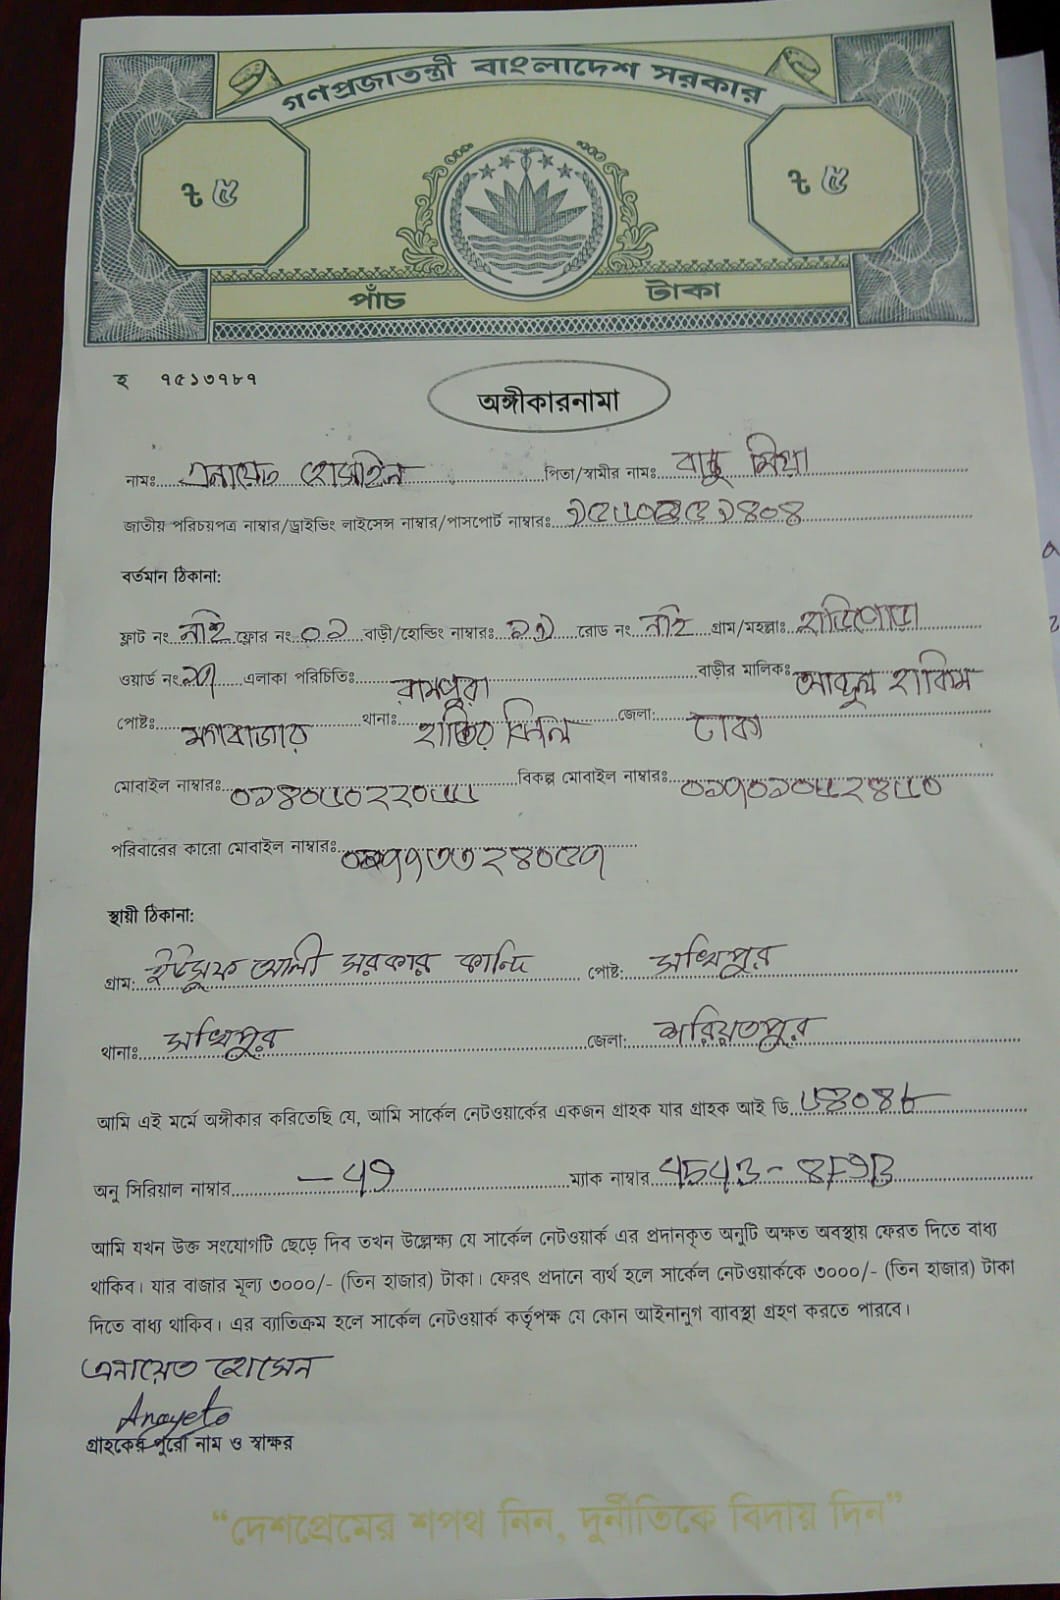 গণপ্রজাতন্ত্রী বাংলাদেশ সরকার
৳ ৫ ৳ ৫
পাঁচ টাকা
হ ৭৫১৩৭৮৭
অঙ্গীকারনামা
নামঃ এনায়েত হোসাইন পিতা/স্বামীর নামঃ বাচ্চু মিয়া
জাতীয় পরিচয়পত্র নাম্বার/ড্রাইভিং লাইসেন্স নাম্বার/পাসপোর্ট নাম্বারঃ
বর্তমান ঠিকানা:
ফ্লাট নং নাই ফ্লোর নং ০১ বাড়ী/হোল্ডিং নাম্বারঃ রোড নং নাই গ্রাম/মহল্লাঃ
ওয়ার্ড নং এলাকা পরিচিতিঃ রামপুরা বাড়ীর মালিকঃ আবদুল হাকিম
পোষ্টঃ মগবাজার থানাঃ হাতির ঝিল জেলা: ঢাকা
মোবাইল নাম্বারঃ ০১৪০৮০২২০৮৮ বিকল্প মোবাইল নাম্বারঃ
পরিবারের কারো মোবাইল নাম্বারঃ
স্থায়ী ঠিকানা:
গ্রাম: ইউসুফ আলী সরকার কান্দি পোষ্ট: সখিপুর
থানাঃ সখিপুর জেলা: শরিয়তপুর
আমি এই মর্মে অঙ্গীকার করিতেছি যে, আমি সার্কেল নেটওয়ার্কের একজন গ্রাহক যার গ্রাহক আই ডি
অনু সিরিয়াল নাম্বার ম্যাক নাম্বার
আমি যখন উক্ত সংযোগটি ছেড়ে দিব তখন উল্লেক্ষ্য যে সার্কেল নেটওয়ার্ক এর প্রদানকৃত অনুটি অক্ষত অবস্থায় ফেরত দিতে বাধ্য
থাকিব। যার বাজার মূল্য ৩০০০/- (তিন হাজার) টাকা। ফেরৎ প্রদানে ব্যর্থ হলে সার্কেল নেটওয়ার্ককে ৩০০০/- (তিন হাজার) টাকা
দিতে বাধ্য থাকিব। এর ব্যাতিক্রম হলে সার্কেল নেটওয়ার্ক কর্তৃপক্ষ যে কোন আইনানুগ ব্যাবস্থা গ্রহণ করতে পারবে।
এনায়েত হোসেন
Anayeto
গ্রাহকের পুরো নাম ও স্বাক্ষর
“দেশপ্রেমের শপথ নিন, দুর্নীতিকে বিদায় দিন”